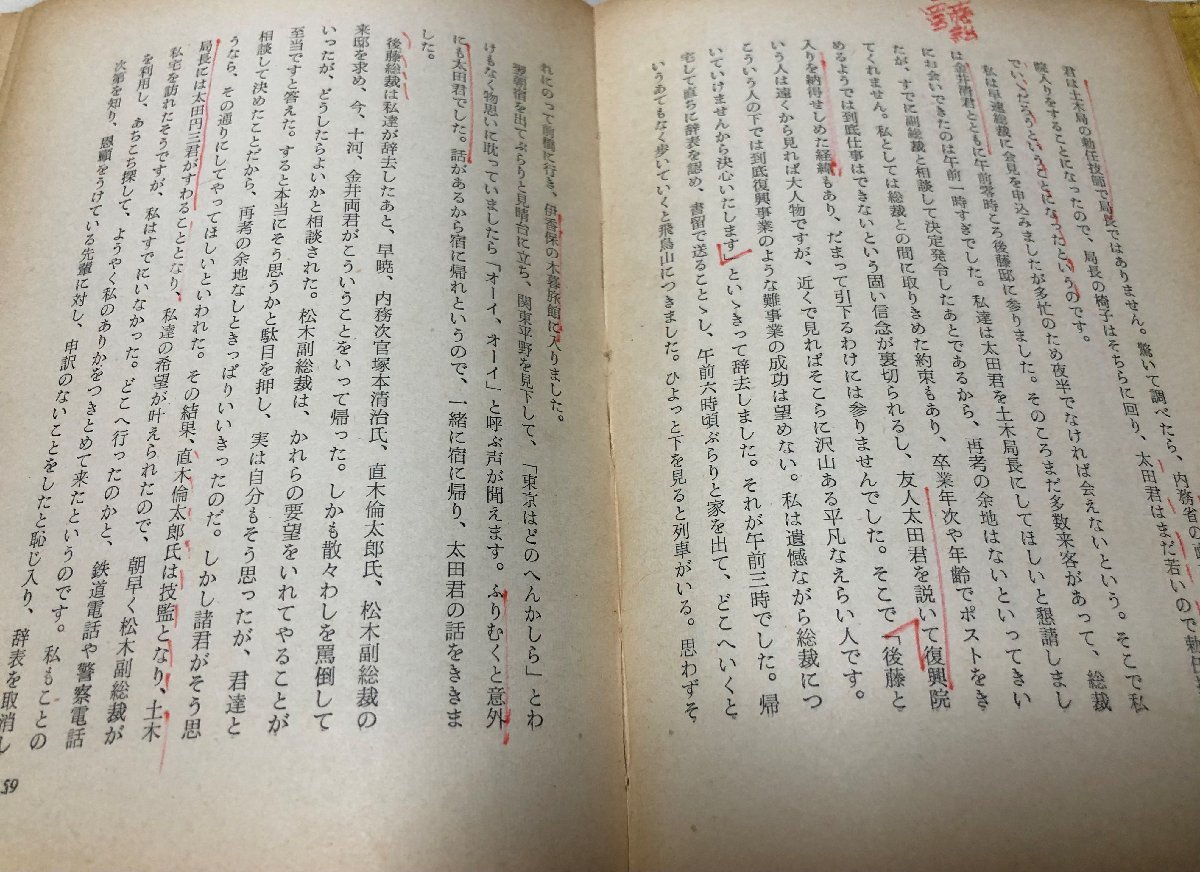 君は土木局の勅任技師で局長ではありません。驚いて調べたら、内務省の
職入りをすることになったので、局長の椅子はそちらに回り、太田君はまだ若いので勅任
でいいだろうということになったというのです。
私は早速総裁に会見を申込みましたが多忙のため夜半でなければ会えないという。そこで私
は金井清君とともに午前零時ころ後藤邸に参りました。そのころまだ多数来客があって、総裁
にお会いできたのは午前一時すぎでした。私達は太田君を土木局長にしてほしいと懇請しまし
たが、すでに副総裁と相談して決定発令したあとであるから、再考の余地はないといってきい
てくれません。私としては総裁との間に取りきめた約束もあり、卒業年次や年齢でポストをき
めるようでは到底仕事はできないという固い信念が裏切られるし、友人太田君を説いて復興院
入りを納得せしめた経緯もあり、だまって引下るわけには参りませんでした。そこで「後藤と
いう人は遠くから見れば大人物ですが、近くで見ればそこらに沢山ある平凡なえらい人です。
こういう人の下では到底復興事業のような難事業の成功は望めない。私は遺憾ながら総裁につ
いていけませんから決心いたします」といゝきって辞去しました。それが午前三時でした。帰
宅して直ちに辞表を認め、書留で送ることゝし、午前六時頃ぶらりと家を出て、どこへいくと
いうあてもなく歩いていくと飛鳥山につきました。ひょっと下を見ると列車がいる。思わずそ
れにのって前橋に行き、伊香保の木暮旅館に入りました。
翌朝宿を出てぶらりと見晴台に立ち、関東平野を見下して、「東京はどのへんかしら」とわ
けもなく物思いに耽っていましたら「オーイ、オーイ」と呼ぶ声が聞えます。ふりむくと意外
にも太田君でした。話があるから宿に帰れというので、一緒に宿に帰り、太田君の話をききま
した。
後藤総裁は私達が辞去したあと、早暁、内務次官塚本清治氏、直木倫太郎氏、松木副総裁の
来邸を求め、今、十河、金井両君がこういうことをいって帰った。しかも散々わしを罵倒して
いったが、どうしたらよいかと相談された。松木副総裁は、かれらの要望をいれてやることが
至当ですと答えた。すると本当にそう思うかと駄目を押し、実は自分もそう思ったが、君達と
相談して決めたことだから、再考の余地なしときっぱりいいきったのだ。しかし諸君がそう思
うなら、その通りにしてやってほしいといわれた。その結果、直木倫太郎氏は技監となり、土木
局長には太田円三君がすわることとなり、私達の希望が叶えられたので、朝早く松木副総裁が
私宅を訪れたそうですが、私はすでにいなかった。どこへ行ったのかと、鉄道電話や警察電話
を利用し、あちこち探して、ようやく私のありかをつきとめて来たというのです。私もことの
次第を知り、恩顧をうけている先輩に対し、申訳のないことをしたと恥じ入り、辞表を取消し
59